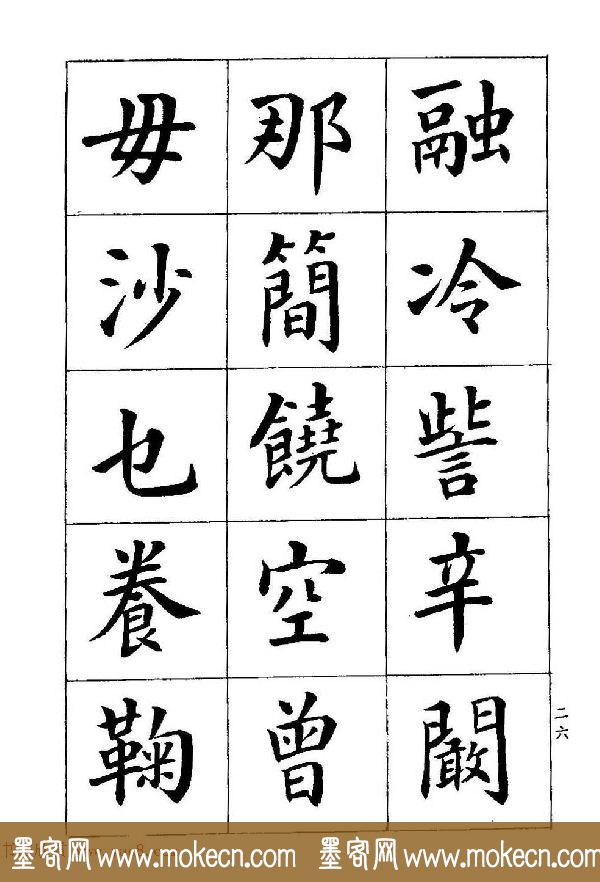 融冷訾辛闞
那簡饒空曾
毋沙乜養鞠
二六
墨客网 www.mokecn.com 墨客网 www.mokecn.com